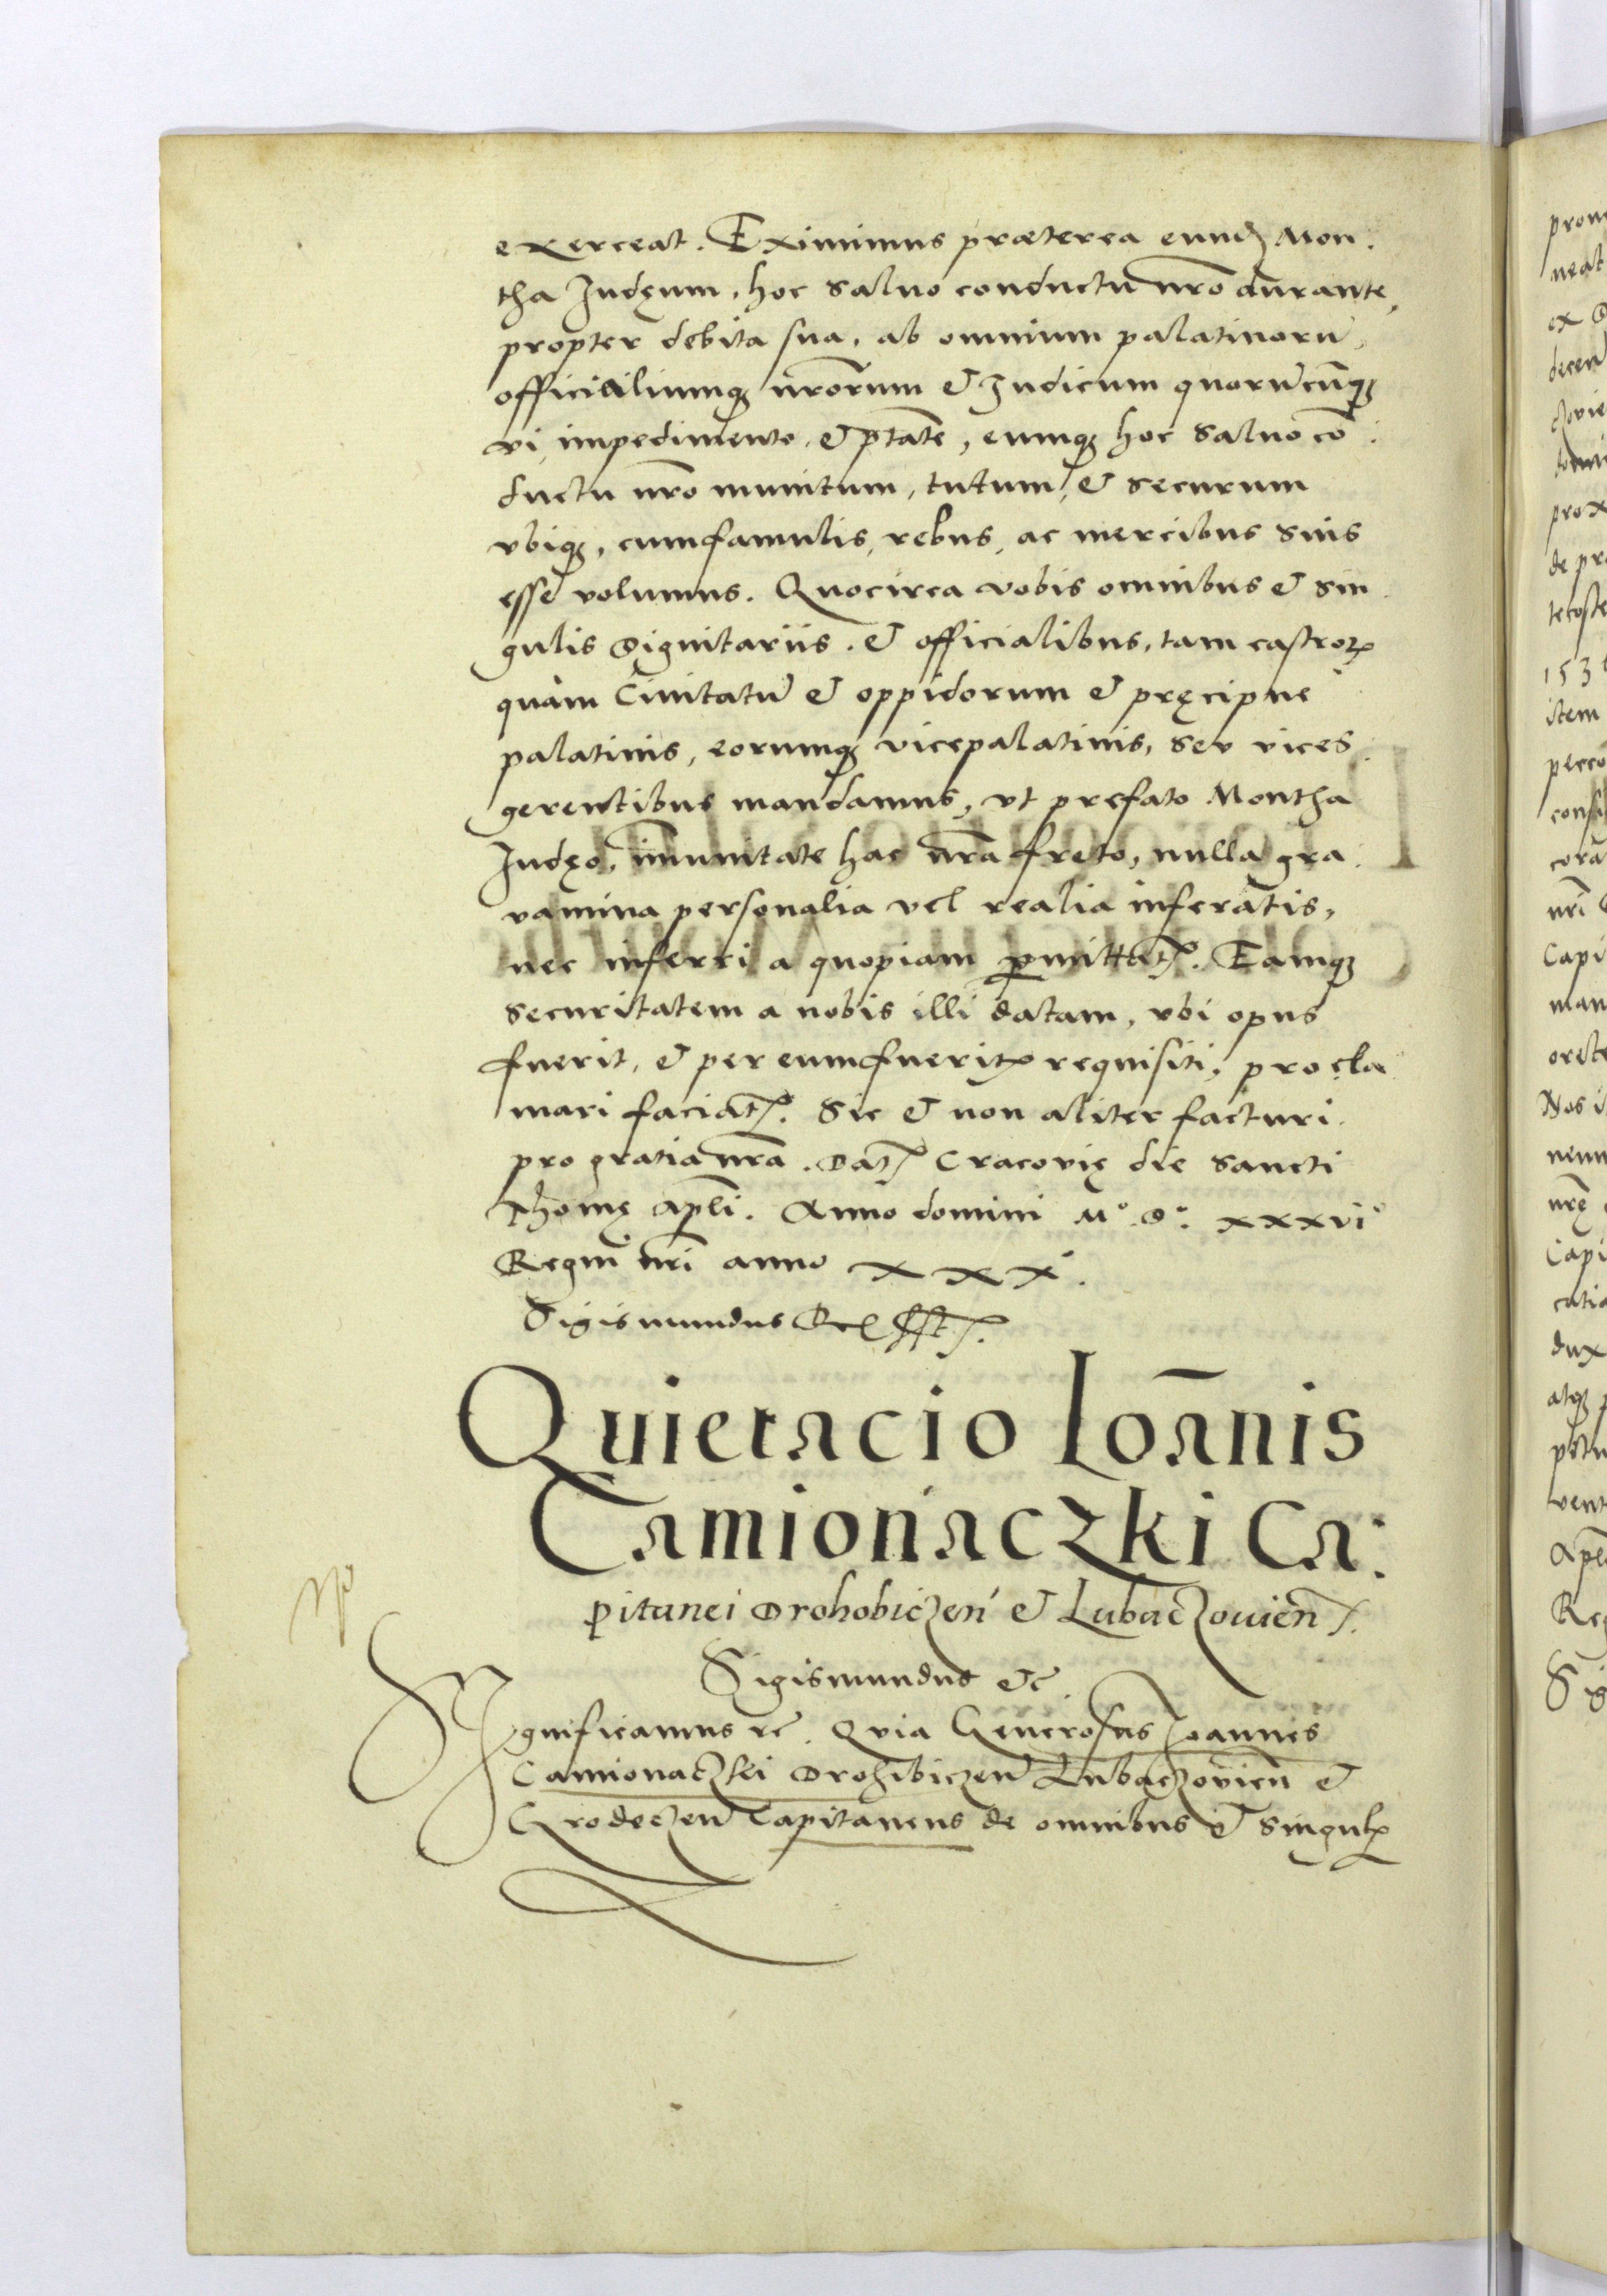 exerceat. Eximimus præterea eundẽ Mon.
tha Judęum, hoc saluo conductu nr̃o durante,
propter debita sua, ab omnium palatinorũ,
officialiumqȝ nr̃orum & Judicum quorũcũqȝ
vi, impedimento, & p̃tate, eumqȝ hoc saluo cõ.
ductu nr̃o munitum, tutum, & securum
vbiqȝ, cum famulis, rebus, ac mercibus suis
esse volumus. Quocirca vobis omnibus & sin.
gulis Dignitariis. & officialibus, tam castroꝝ
quàm Ciuitatũ & oppidorum & pręcipue
palatinis, eorumqȝ vicepalatinis, seu vices.
gerentibus mandamus, vt prefato Montha
Judęo, im̃unitate hac nr̃a freto, nulla gra.
uamina personalia vel realia inferatis,
nec inferri a quopiam ꝑmittatꝭ. Eamqȝ
securitatem a nobis illi datam, vbi opus
fuerit, & per eum fueritꝭ requisiti, procla
mari faciatꝭ. Sic & non aliter facturi.
pro gratia nr̃a. Datꝭ Cracovię die sancti
Thomę apl̃i. Anno domini Mº. Dº. xxxviº
Regni nr̃i anno xxx.
Sigismundus Rex sstꝭ.
Quietacio Ioãnis
Camionaczki Ca:
pitanei Drohobiczeñ & Lubaczouieñ.
Sigismundus &c
Significamus &c. Quia Generosus Joannes
Camionaczki Drohibiczeñ Lubaczovieñ &
Grodeczeñ Capitaneus de omnibus & singulꝭ
pron
neat
ex D
decen
czovie
prox
de pr
tecoste
1536
item
perco
consi
cora
nr̃i
Capi
man
Nos i
nr̃ę
Capi
dux
atqȝ p
vent
Apl
Reg
Sig